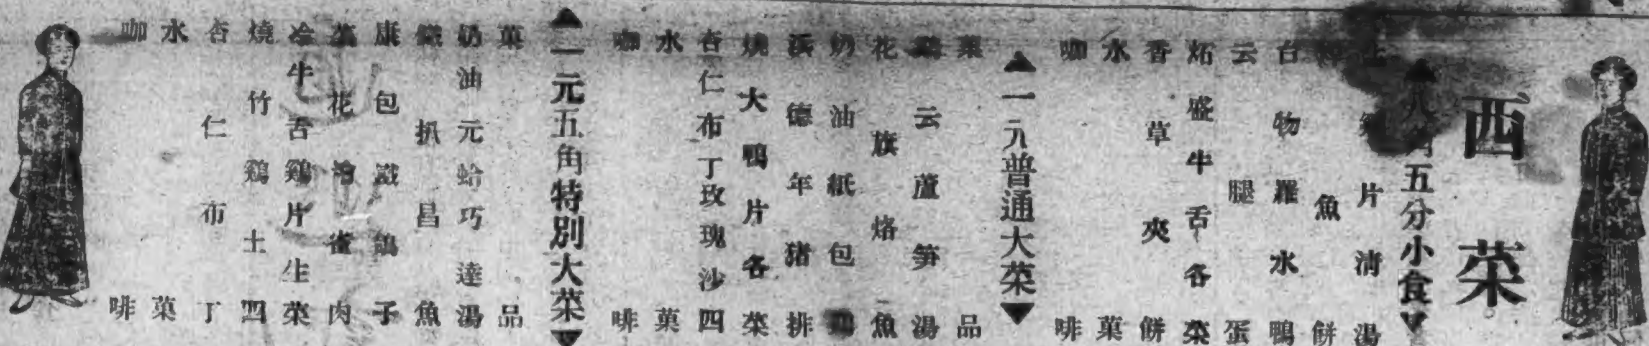 西菜
▲八角五分小食▼
片清湯
魚餅
台物羅水鴨
云腿蛋
炻盛牛舌各菜
香草夾餅
水菓
咖啡
▲一元普通大菜▼
菓品
鷄云蘆笋湯
花旗烙魚
奶油紙包鷄
浜德年猪排
燒大鴨片各菜
杏仁布丁玫瑰沙四
水菓
咖啡
▲一元五角特別大菜▼
菓品
奶油元蛤巧達湯
鐵扒昌魚
康包鴿子
花燴雀肉
冷牛舌鷄片生菜
燒竹鷄土四
杏仁布丁
水菓
咖啡